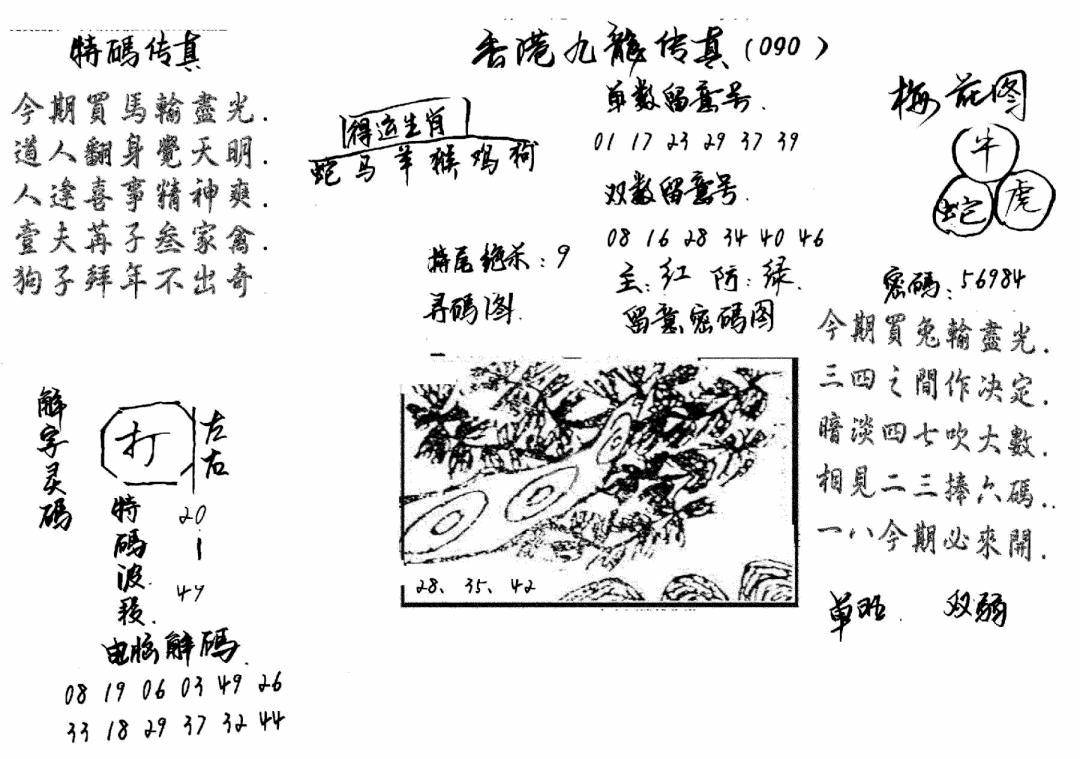 特碼传真
今期買馬輸盡光.
道人翻身覺天明.
人逢喜事精神爽.
壹夫苒子叁家禽.
狗子拜年不出奇
香港九龍传真(090)
得运生肖
蛇马羊猴鸡狗
单数留意号.
01 17 23 29 37 39
双数留意号.
08 16 28 34 40 46
特尾绝杀:9
主:红 防:绿.
寻码图.
留意密码图
28、35、42
梅花图
牛
蛇 虎
密码:56984
今期買兔輸盡光.
三四之間作決定.
暗淡四七吹大數.
相見二三捧六碼..
一八今期必來開.
单旺. 双弱
解字灵碼
打
左右
特碼波段.
20-47
电脑解碼.
08 19 06 03 49 26
33 18 29 37 32 44